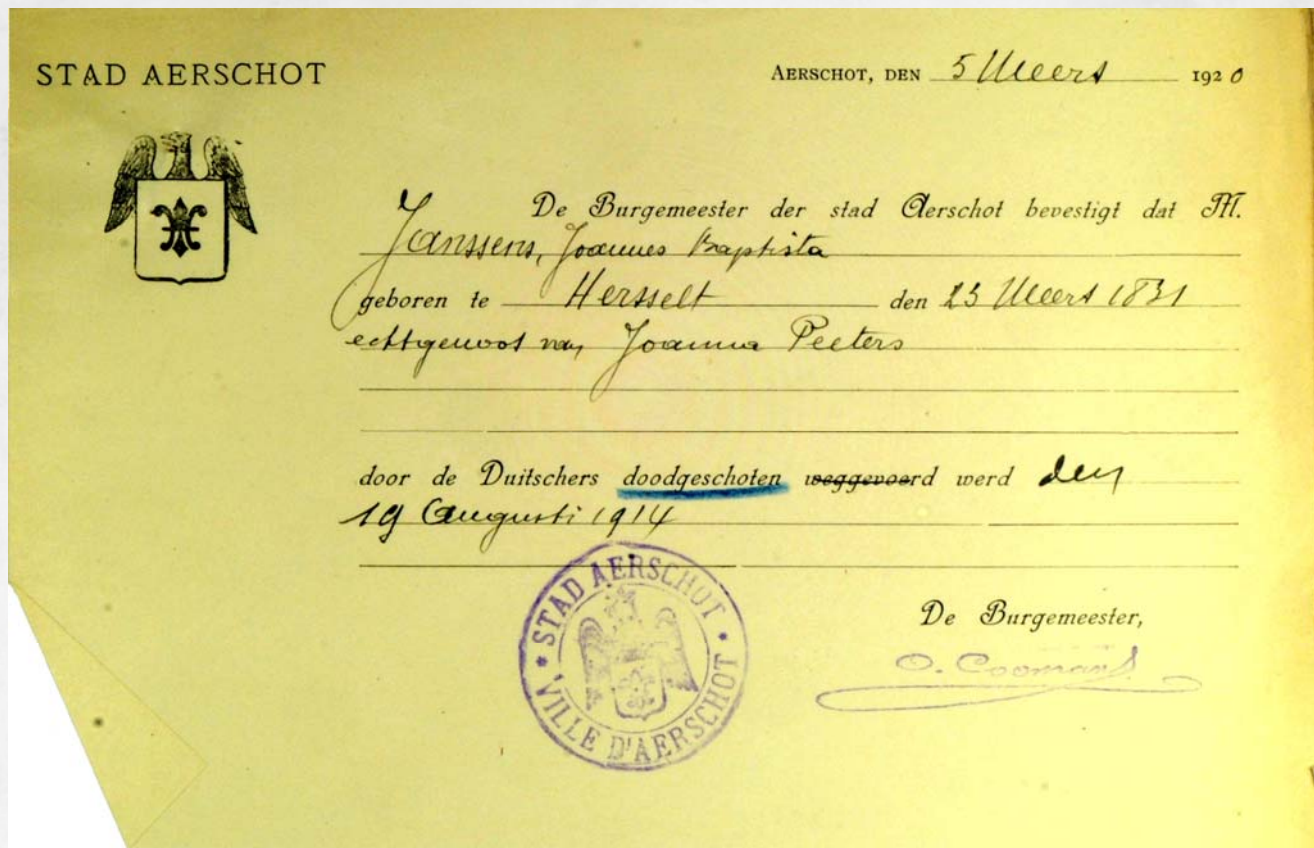 STAD AERSCHOT
AERSCHOT, DEN 5 Meert 1920
De Burgemeester der stad Aerschot bevestigt dat M.
Janssens, Joannes Baptista
geboren te Hersselt den 23 Meert 1831
echtgenoot van Joanna Peeters
door de Duitschers doodgeschoten weggevoerd werd den
19 Augusti 1914
STAD AERSCHOT
VILLE D'AERSCHOT
De Burgemeester,
O. Coomans